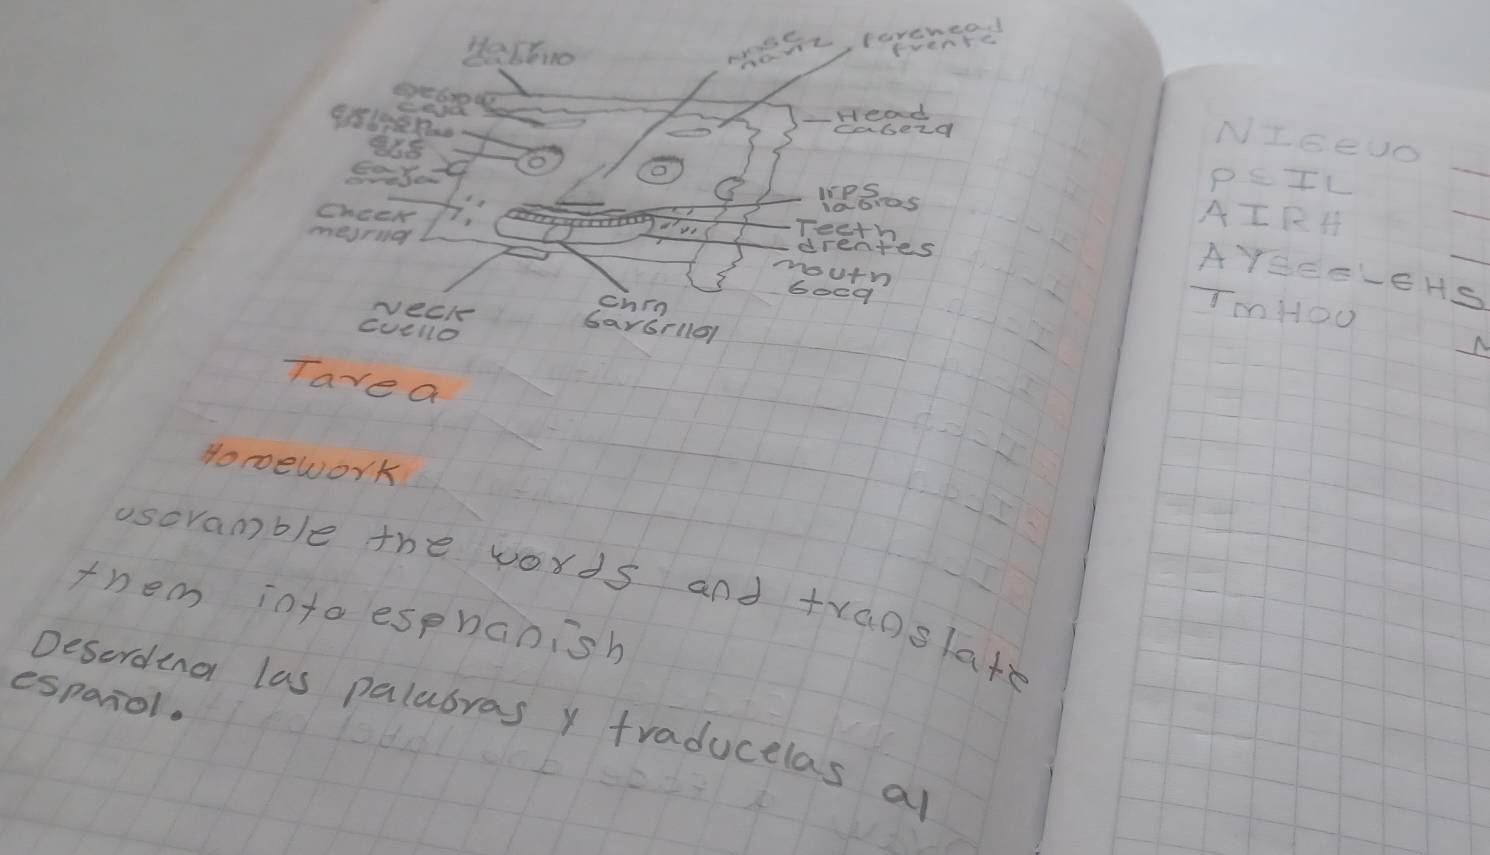 Hair
cabello
nose
nariz
forehead
frente
Head
cabeza
ceja
ear
oreja
cheek
mejilla
lips
labios
Teeth
drentes
mouth
boca
Neck
cuello
chin
barbilla
Tarea
Homework
uscramble the words and translate
them into esphanish
Desordena las palabras y traducelas al
español.
NIGEUO
PSIL
AIRH
AYSEELEHS
TMHOU